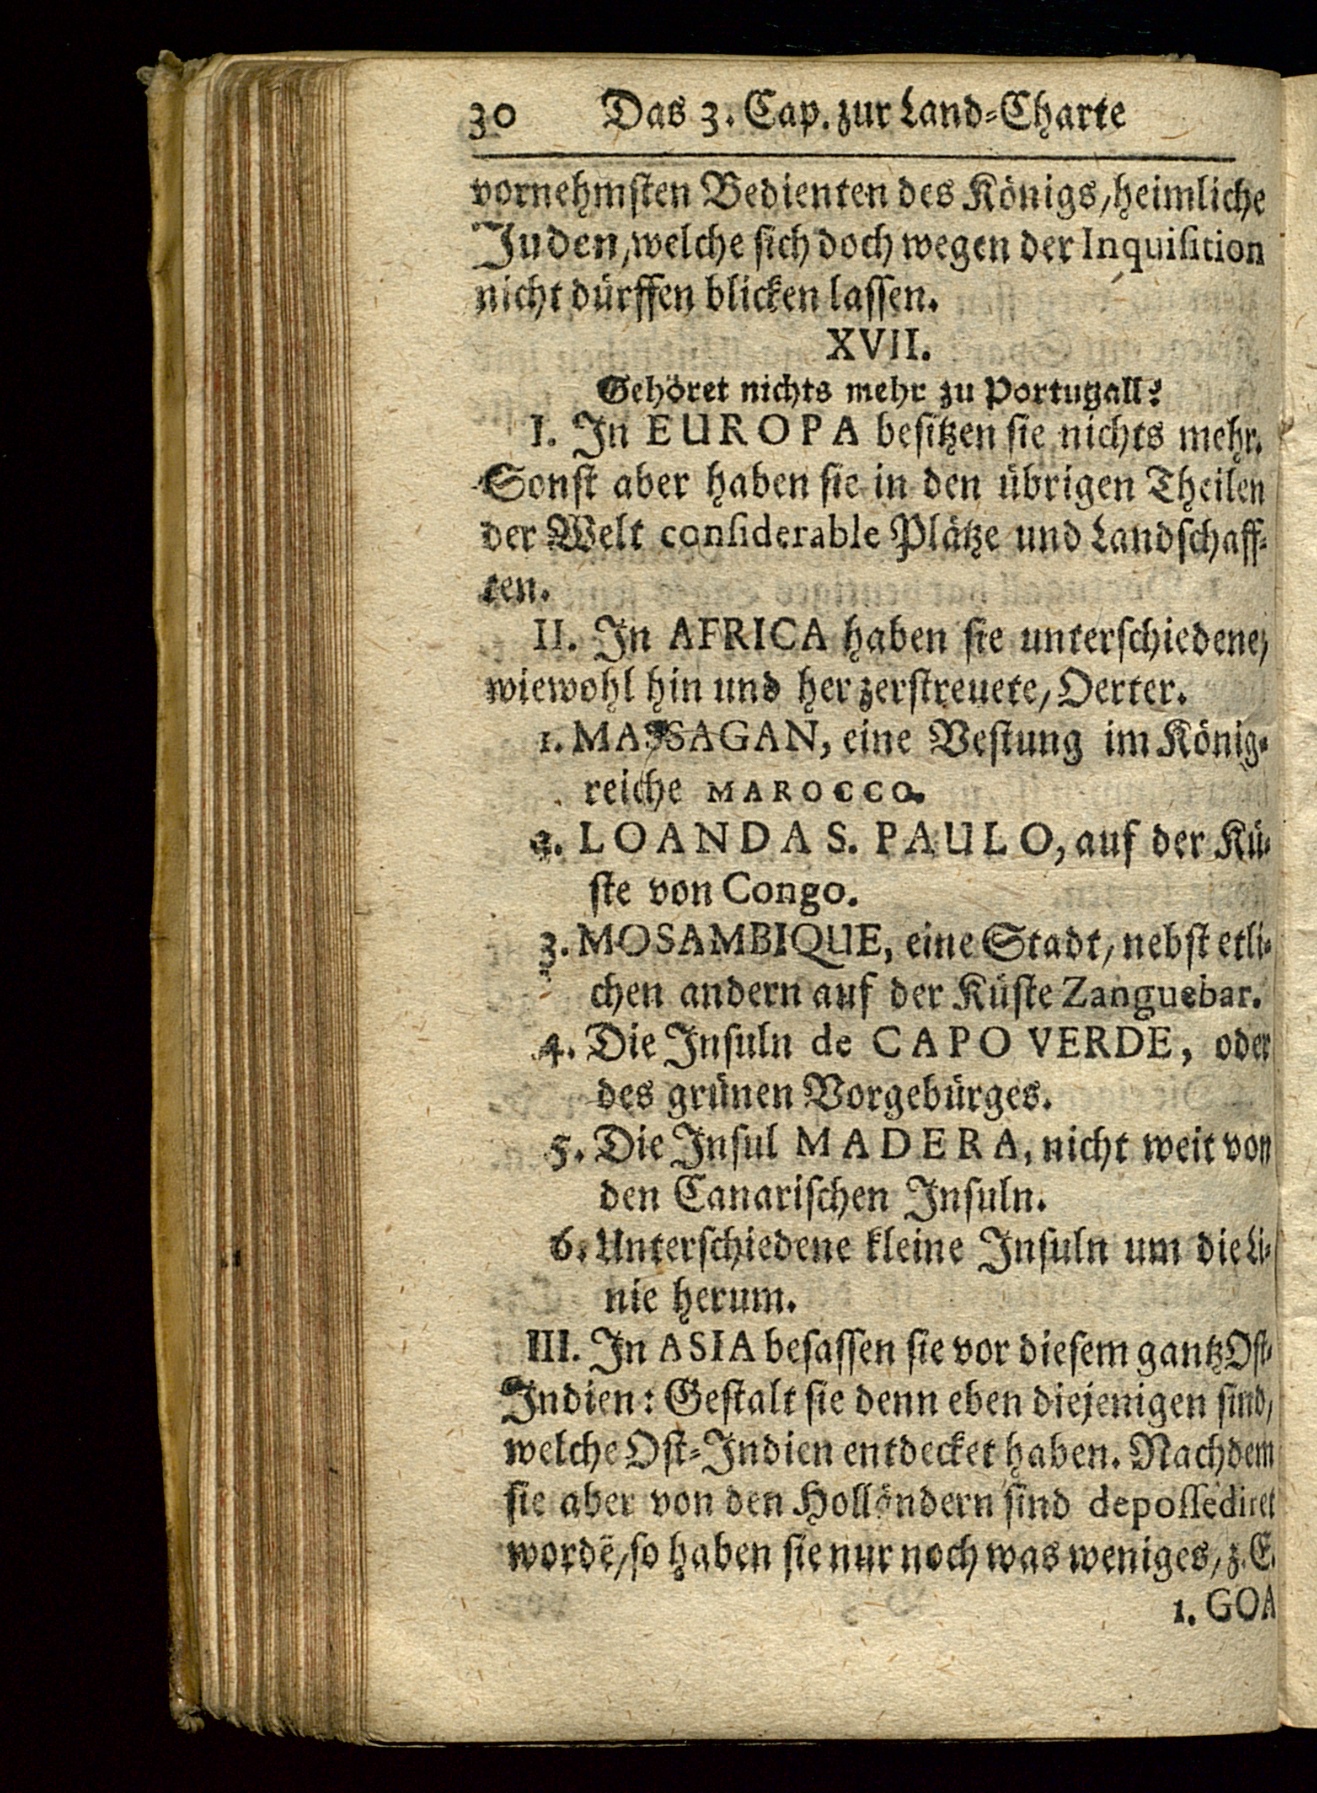 30 Das 3. Cap. zur Land-Charte
vornehmsten Bedienten des Königs/heimliche
Juden/welche sich doch wegen der Inquisition
nicht dürffen blicken lassen.
XVII.
Gehöret nichts mehr zu Portugall?
I. In EUROPA besitzen sie nichts mehr.
Sonst aber haben sie in den übrigen Theilen
der Welt considerable Plätze und Landschaff-
ten.
II. In AFRICA haben sie unterschiedene/
wiewohl hin und her zerstreuete/Oerter.
1. MASSAGAN, eine Vestung im König-
reiche MAROCCO.
2. LOANDA S. PAULO, auf der Kü-
ste von Congo.
3. MOSAMBIQUE, eine Stadt/nebst etli-
chen andern auf der Küste Zanguebar.
4. Die Insuln de CAPO VERDE, oder
des grünen Vorgebürges.
5. Die Insul MADERA, nicht weit von
den Canarischen Insuln.
6. Unterschiedene kleine Insuln um die Li-
nie herum.
III. In ASIA besassen sie vor diesem gantz Ost-
Indien: Gestalt sie denn eben diejenigen sind/
welche Ost-Indien entdecket haben. Nachdem
sie aber von den Holländern sind depossediret
wordē/so haben sie nur noch was weniges/z.E.
1. GOA